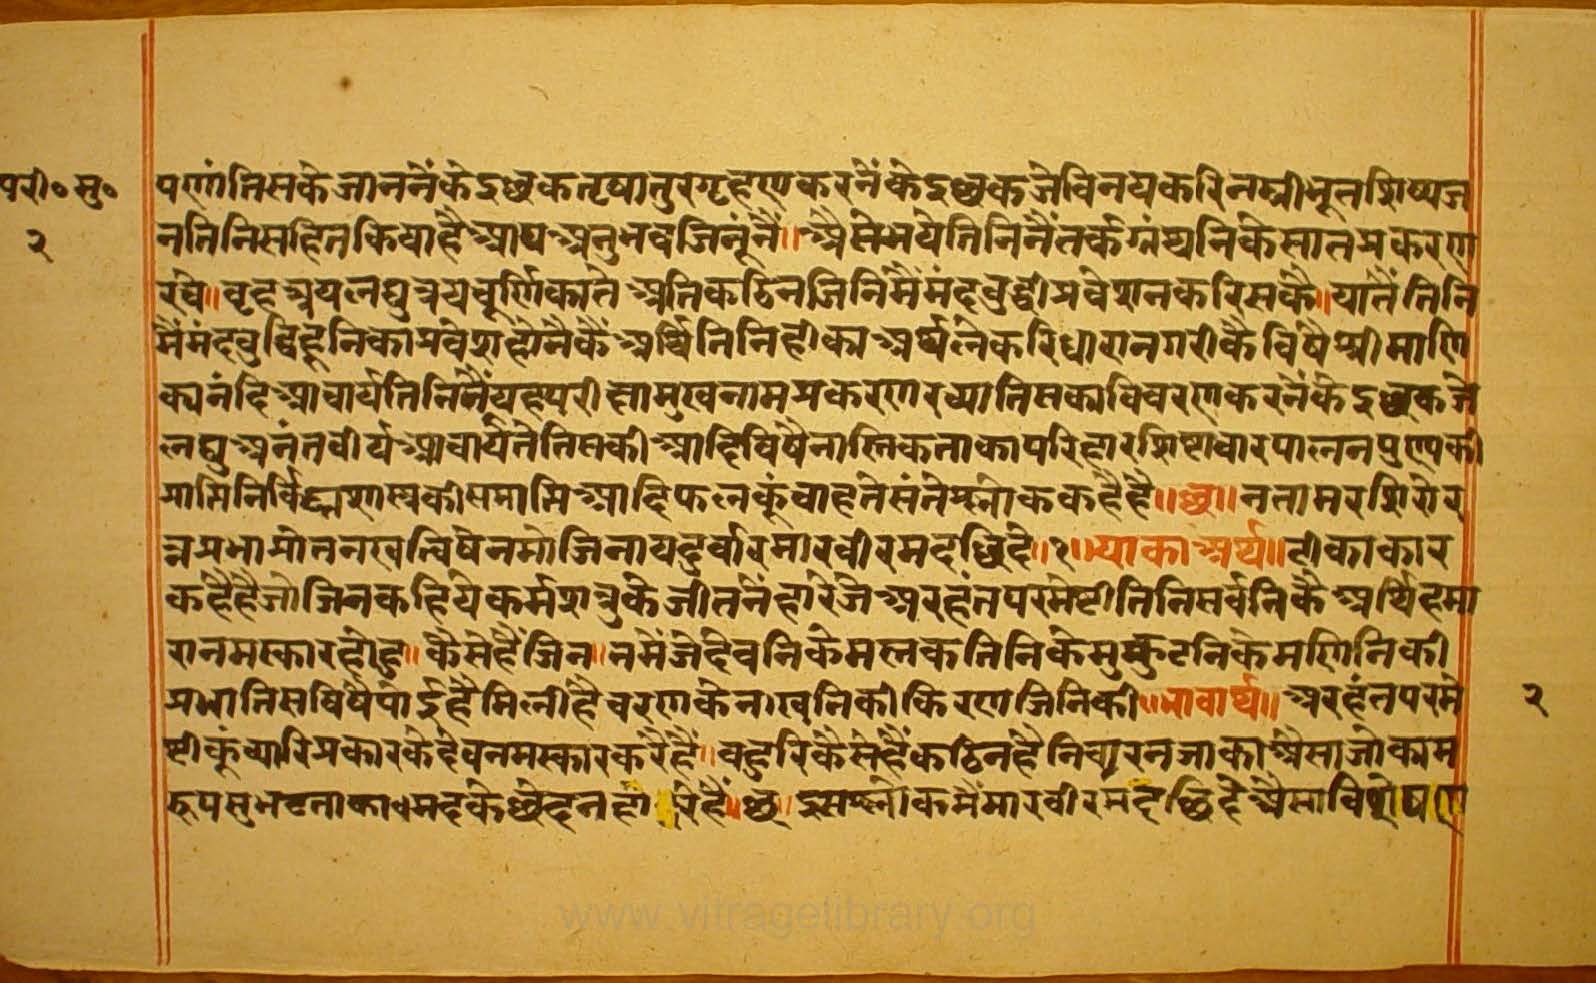 परी॰ मु॰
२
पणां तिसके जाननेंके इच्छुक तृषातुर गृहण करनेंके इच्छुक जे विनयकरि नम्रीभूत शिष्यज
नतिनि सहित किया है आप अनुभव जिनूंनैं॥ अैसे भये तिनिनैं तर्क ग्रंथनिके सात प्रकरण
रचे॥ वृहत्रय लघुत्रय चूर्णिका ते अति कठिन जिनिमैं मंदबुद्धी प्रवेश न करि सकै॥ यातैं तिनि
मैं मंदबुद्धि हूनिका प्रवेश होनैकै अर्थि तिनिहीका अर्थ लेकरि धारा नगरीकै विषै श्री माणि
क्यनंदि आचार्य तिनिनैं यह परीक्षामुख नाम प्रकरण रच्या तिसका विवरण करनेंके इच्छुक जे
लघु अनंतवीर्य आचार्य ते तिसकी आदि विषै नास्तिकताका परिहार शिष्टाचारपालन पुण्यकी
प्राप्ति निर्विघ्न शास्त्रकी समाप्ति आदि फलकूं चाहते संते श्लोक कहै है॥छ॥ नतामरशिरोर
त्नप्रभाप्रोतनखत्विषे नमो जिनाय दुर्वारमारवीरमदच्छिदे॥१॥ याका अर्थ॥ टीकाकार
कहै है जो जिन कहिये कर्मशत्रुके जीतनेंहारे जे अरहंत परमेष्टी तिनि सर्वनिकै अर्थि हमा
रा नमस्कार होहु॥ कैसे हैं जिन॥ नमें जे देव निके मस्तक तिनिके मुकुटनिके मणिनिकी
प्रभा तिसविषै पोई है मिली है चरणके नाखूनिकी किरण जिनिकी॥ भावार्थ॥ अरहंत परमे
२
ष्टीकूं च्यारि प्रकारके देव नमस्कार करै हैं॥ बहुरि कैसे हैं कठिन है निवारन जाका अैसा जो काम
रूप सुभट ताका मदके छेदनहारे हैं॥छ॥ इस श्लोकमैं मारवीरमदच्छिदे अैसा विशेषण
www.vitragelibrary.org